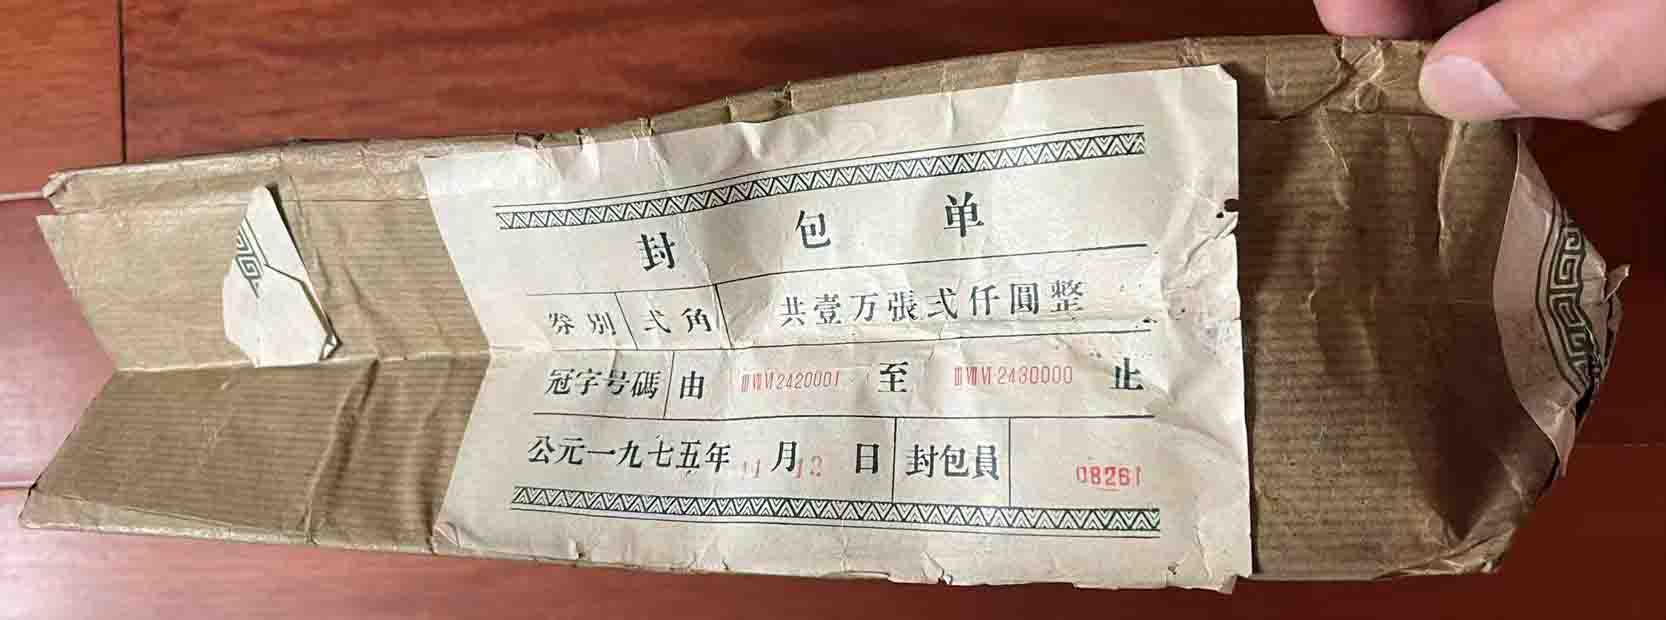 封包单
券别 弍角 共壹万張弍仟圓整
冠字号碼 由 ⅢⅦⅥ2420001 至 ⅢⅦⅥ2430000 止
公元一九七五年 11月12日 封包員 08261